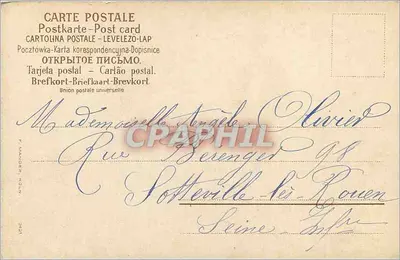 CARTE POSTALE
Postkarte - Post card
CARTOLINA POSTALE - LEVELEZO-LAP
Pocztówka-Karta korespondencyjna-Dopisnice
ОТКРЫТОЕ ПИСЬМО.
Tarjeta postal - Carião postal.
Brefkort-Briefkaart-Brevkort
Union postale universelle
Mademoiselle Angèle Olivier
Rue Berenger 98
Sotteville-lès-Rouen
Seine-Infre
CPRPHIL